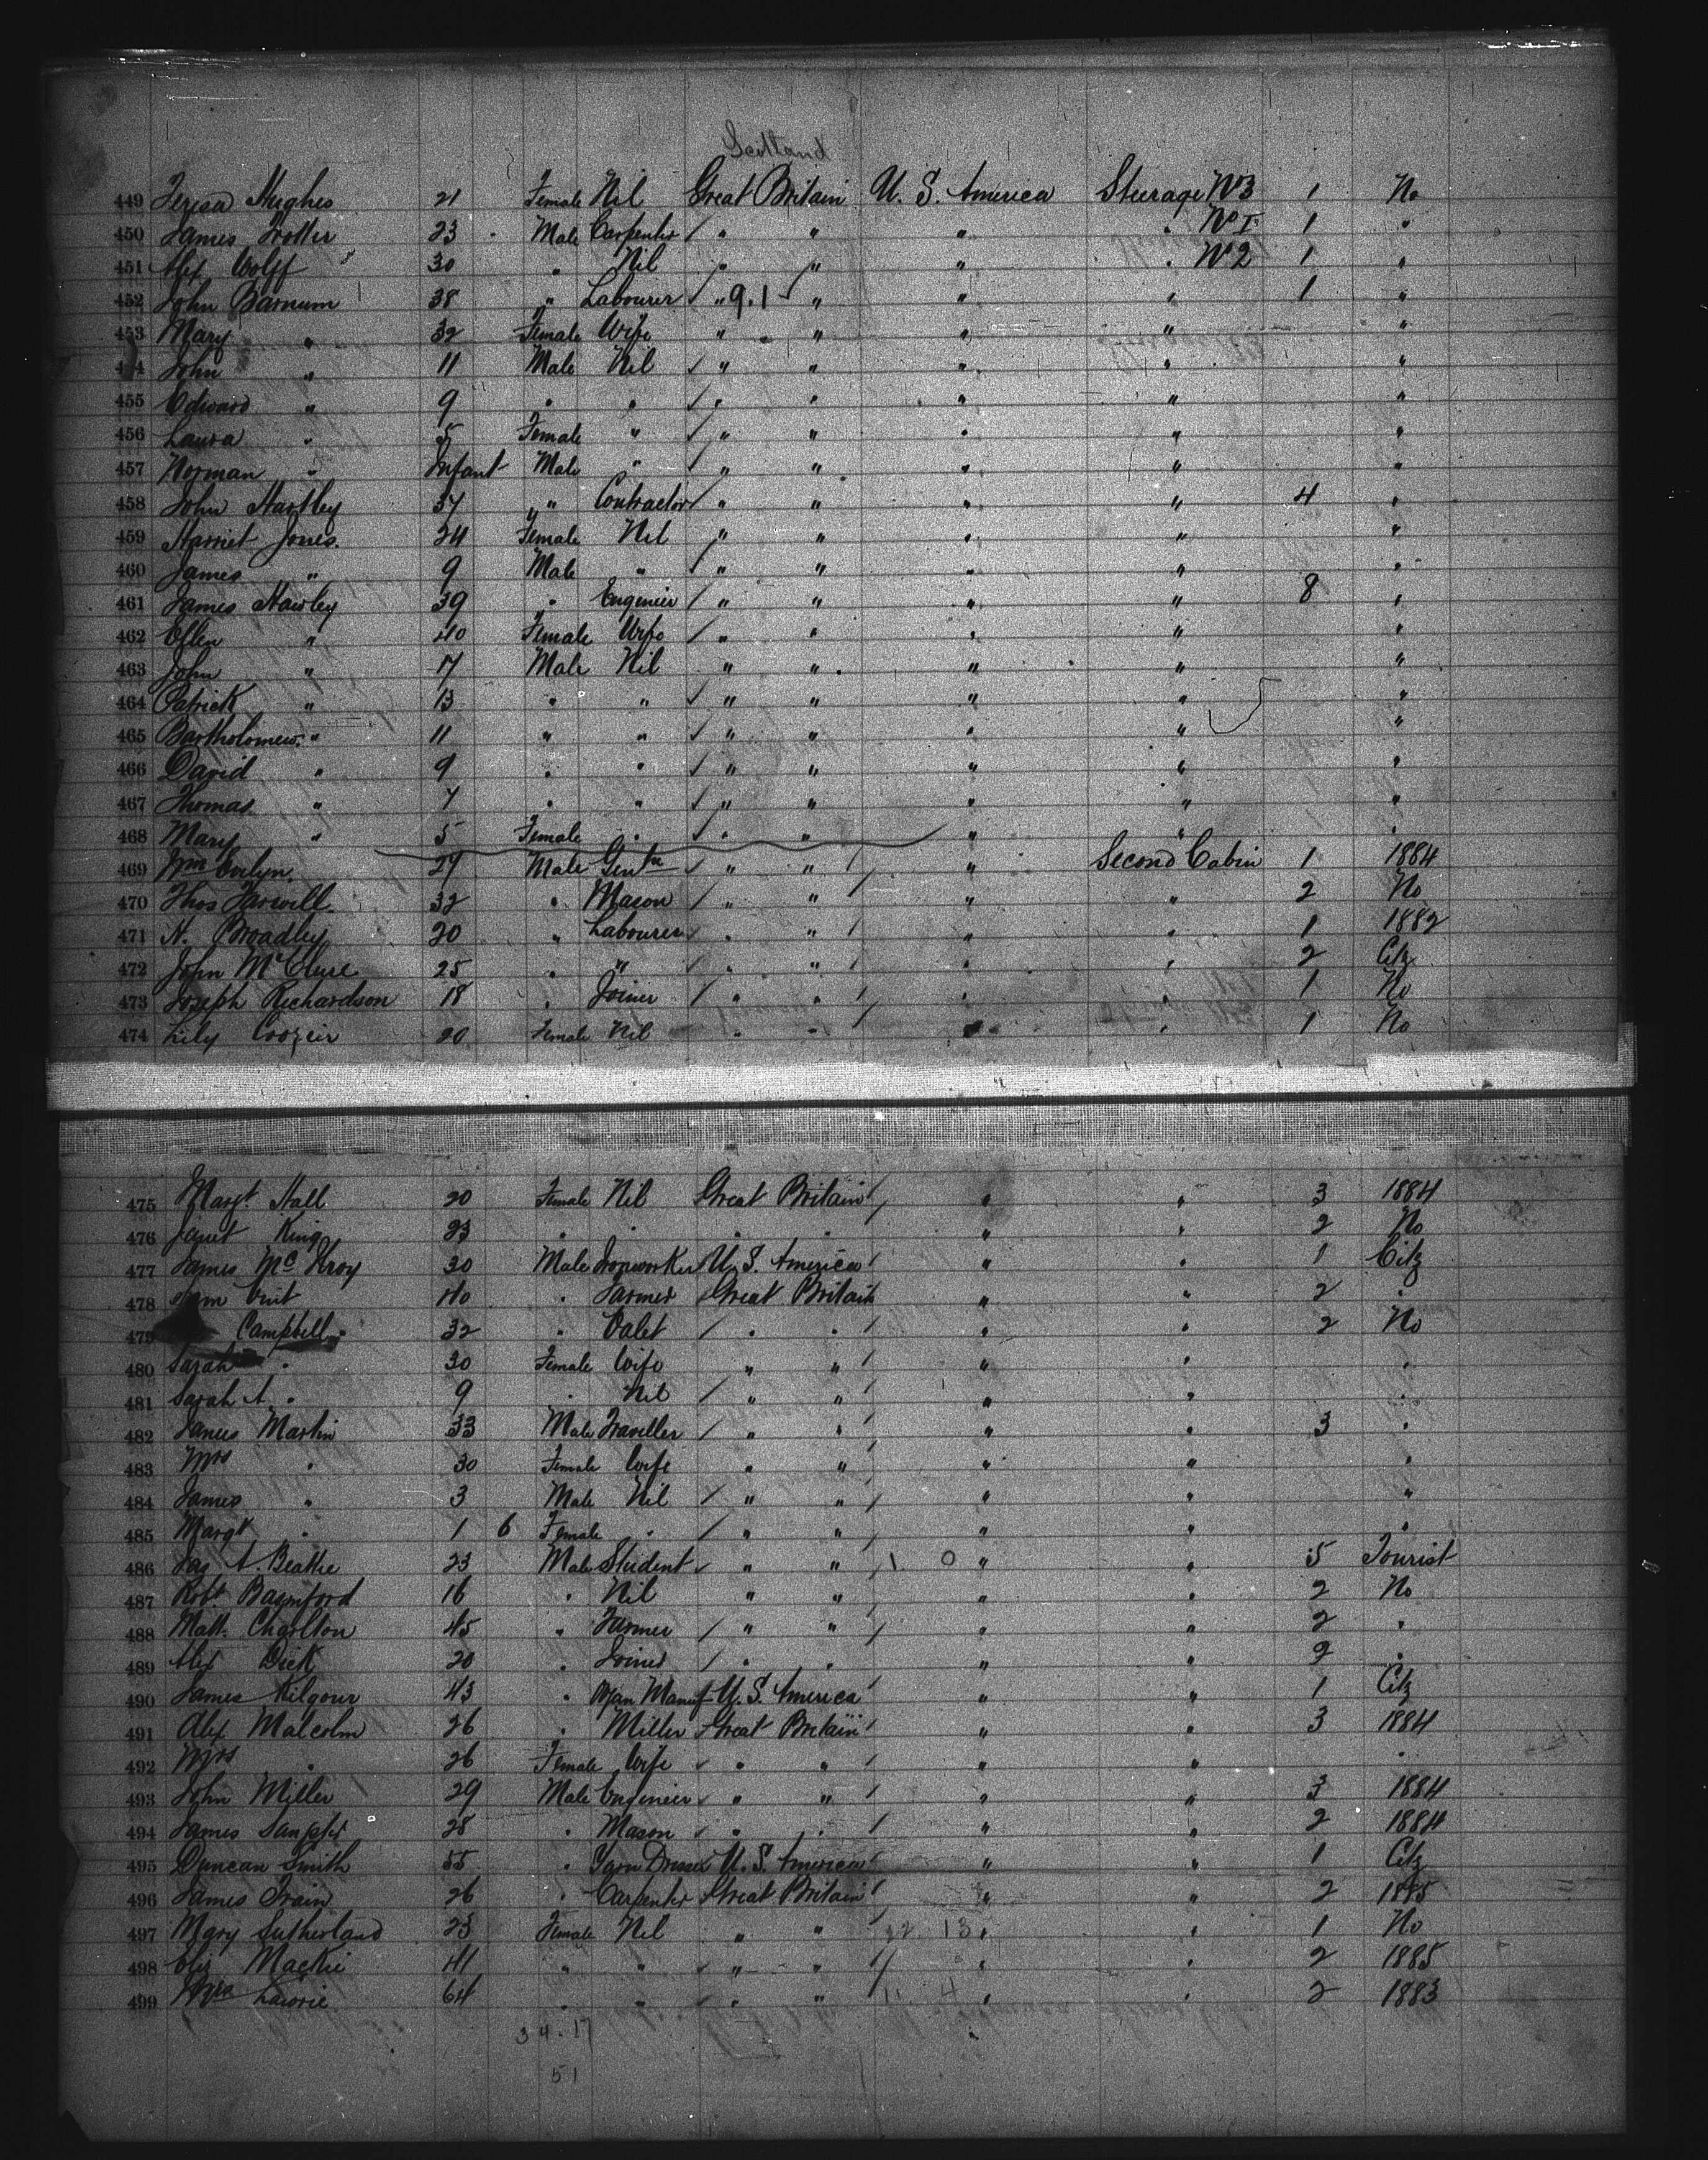 Scotland
449 Teresa Hughes 21 Female Nil Great Britain U. S. America Steerage No 3 1 No
450 James Trotter 23 Male Carpenter / " " " " No I 1 "
451 Alex Wolff 30 " Nil " " " " No 2 1 "
452 John Barnum 38 " Labourer / " 9.1 " " " 1 "
453 Mary " 32 Female Wife " " " " "
454 John " 11 Male Nil " " " " "
455 Edward " 9 " " " " " " "
456 Laura " 5 Female " " " " " "
457 Norman " Infant Male " " " " " "
458 John Hartley 37 " Contractor " " " " 4 "
459 Harriet Jones. 24 Female Nil " " " " "
460 James " 9 Male " " " " " "
461 James Hawley 39 " Engenier " " " " 8 "
462 Ellen " 40 Female Wife " " " " "
463 John " 17 Male Nil " " " " "
464 Patrick " 13 " " " " " " "
465 Bartholomew " 11 " " " " " " "
466 David " 9 " " " " " " "
467 Thomas " 7 " " " " " " "
468 Mary " 5 Female " " " " " "
469 Wm Evelyn. 27 Male Gentn " " " Second Cabin 1 1884
470 Thos Farwill. 32 " Mason " " " " 2 No
471 H. Broadley 20 " Labourer " " " " 1 1882
472 John McClure 25 " " " " " " 2 Citz
473 Joseph Richardson 18 " Joiner " " " " 1 No
474 Lily Crozeir 20 Female Nil " " " " 1 No
475 Margt Hall 20 Female Nil Great Britain " " 3 1884
476 Janet King 23 " " " " " " 2 No
477 James McElroy 30 Male Ironworker U. S. America " " 1 Citz
478 40 " Farmer Great Britain " " 2 "
479 Campbell 32 " Valet " " " " 2 No
480 Sarah " 30 Female Wife " " " " "
481 Sarah A. " 9 " Nil " " " " "
482 James Martin 33 Male Traveller " " " " 3 "
483 Mrs " 30 Female Wife " " " " "
484 James " 3 Male Nil " " " " "
485 Margt " 1 6 Female " " " " " "
486 Jas A. Beattie 23 Male Student " " 1 0 " " 5 Tourist
487 Robt Bamford 16 " Nil " " " " 2 No
488 Matt. Charlton 45 " Farmer " " " " 2 "
489 Alex Dick 20 " Joiner " " " " 2 "
490 James Kilgour 43 " Manuf U. S. America " " 1 Citz
491 Alex Malcolm 26 " Miller Great Britain " " 3 1884
492 Mrs " 26 Female Wife " " " " "
493 John Miller 29 Male Engenier " " " " 3 1884
494 James 28 " Mason " " " " 2 1884
495 Duncan Smith 55 " Yarn Dresser U. S. America " " 1 Citz
496 James Train 26 " Carpenter Great Britain " " 2 1885
497 Mary Sutherland 23 Female Nil " " 22 13 " " 1 No
498 Mackie 41 " " " " " " 2 1885
499 Mrs Lawrie 64 " " " " 11 4 " " 2 1883
34.17
51